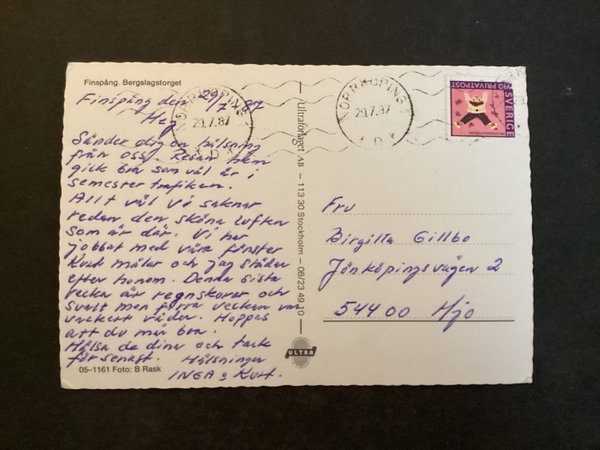 Finspång. Bergslagstorget
Finspång den 29/7-87
Hej
Sänder dig en hälsning
från oss. Resan hem
gick bra som väl är i
semester trafiken.
Allt väl vi saknar
redan den sköna luften
som är där. Vi har
jobbat med våra fönster
Kurt målar och jag städer
efter honom. Denna sista
vecka är regnskurar och
svalt men förra veckan var
vackert väder. Hoppas
att du mår bra.
Hälsa de dina och tack
för senast. Hälsningar
INGA o Kurt.
05-1161 Foto: B Rask
Ultraförlaget AB – 113 30 Stockholm – 08/23 49 10
ULTRA
NORRKÖPING 1
29.7.87
NORRKÖPING 1
29.7.87
D K
SVERIGE
PRIVATPOST
Fru
Birgitta Gillbo
Jönköpingsvägen 2
544 00 Hjo